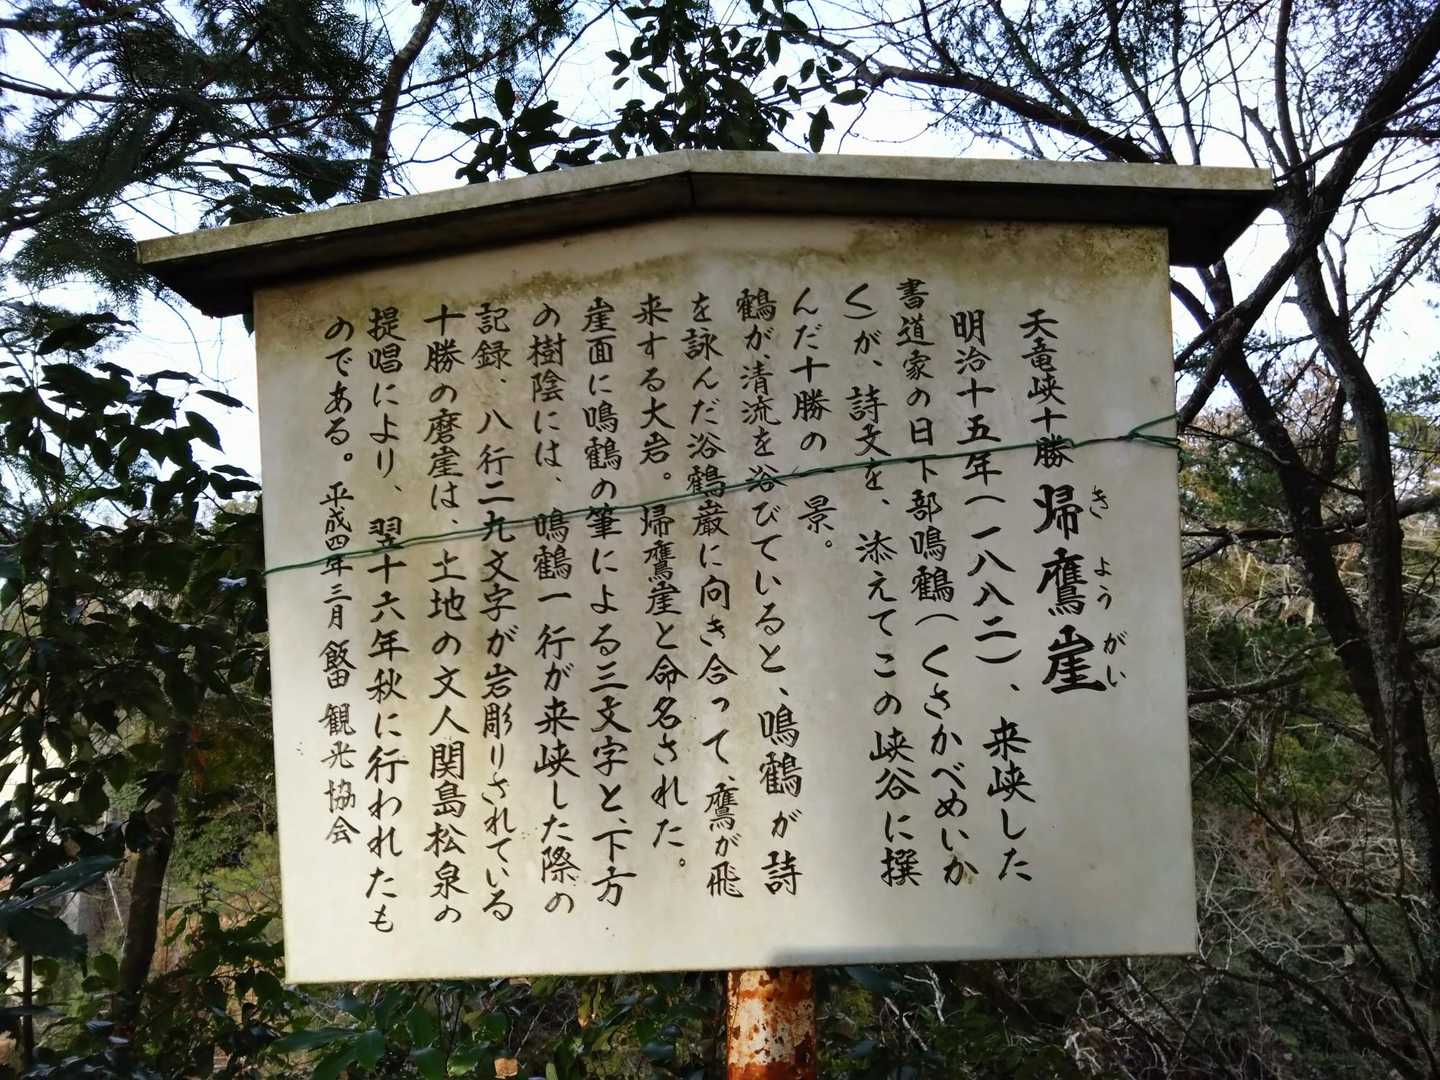 天竜峡十勝 帰鷹崖
き よう がい
明治十五年(一八八二)、来峡した
書道家の日下部鳴鶴(くさかべめいか
く)が、詩文を、添えてこの峡谷に撰
んだ十勝の一景。
鶴が、清流を浴びていると、鳴鶴が詩
を詠んだ浴鶴巌に向き合って、鷹が飛
来する大岩。帰鷹崖と命名された。
崖面に鳴鶴の筆による三文字と、下方
の樹陰には、鳴鶴一行が来峡した際の
記録、八行二九文字が岩彫りされている
十勝の磨崖は、土地の文人関島松泉の
提唱により、翌十六年秋に行われたも
のである。 平成四年三月飯田観光協会